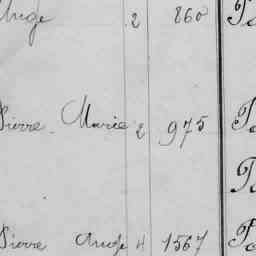 Ange 2 860
Pierre Marie 2 975
Pierre Ange 4 1567